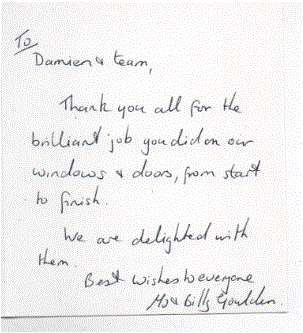 To
Damien & team,
Thank you all for the
brilliant job you did on our
windows & doors, from start
to finish.
We are delighted with
them.
Best wishes to everyone
Mo & Billy Goulden.